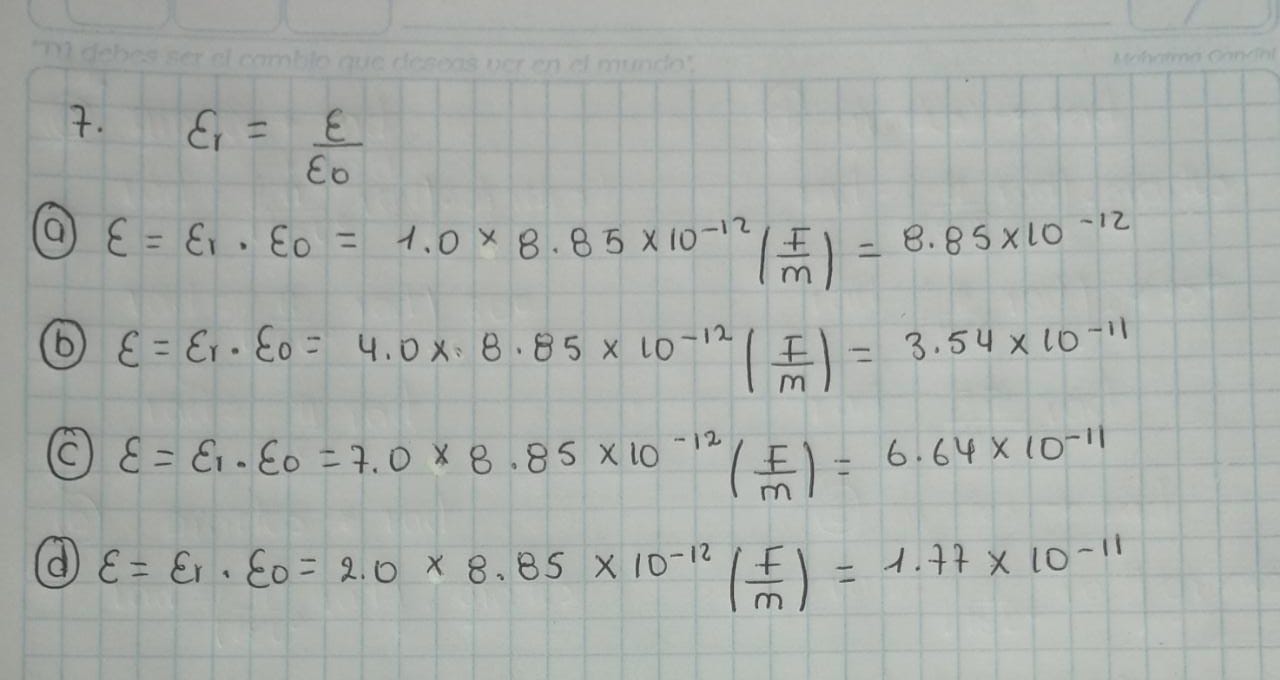 "Tú debes ser el cambio que deseas ver en el mundo". Mahatma Gandhi
7. εr = ε/ε0
ⓐ ε = εr · ε0 = 1.0 × 8.85 × 10⁻¹² (F/m) = 8.85 × 10⁻¹²
ⓑ ε = εr · ε0 = 4.0 × 8.85 × 10⁻¹² (F/m) = 3.54 × 10⁻¹¹
ⓒ ε = εr · ε0 = 7.0 × 8.85 × 10⁻¹² (F/m) = 6.64 × 10⁻¹¹
ⓓ ε = εr · ε0 = 2.0 × 8.85 × 10⁻¹² (F/m) = 1.77 × 10⁻¹¹